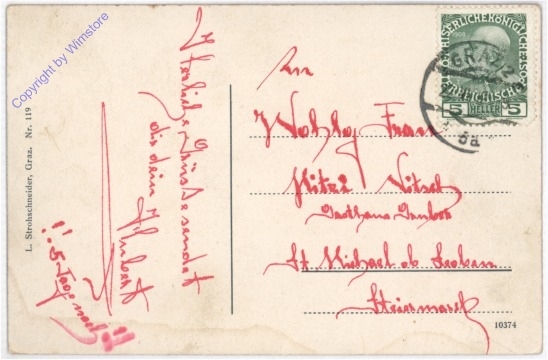 Copyright by Wimstore
L. Strohschneider, Graz. Nr. 119
Herzliche Grüsse sendet
dir dein Hubert
5 Tage noch!!
KAISERLICHEKÖNIGLICHE
5 HELLER 5
GRAZ 2
5a
An
Frau
Mitzi
Gasthaus
St Michael ob Leoben
Steiermark
10374